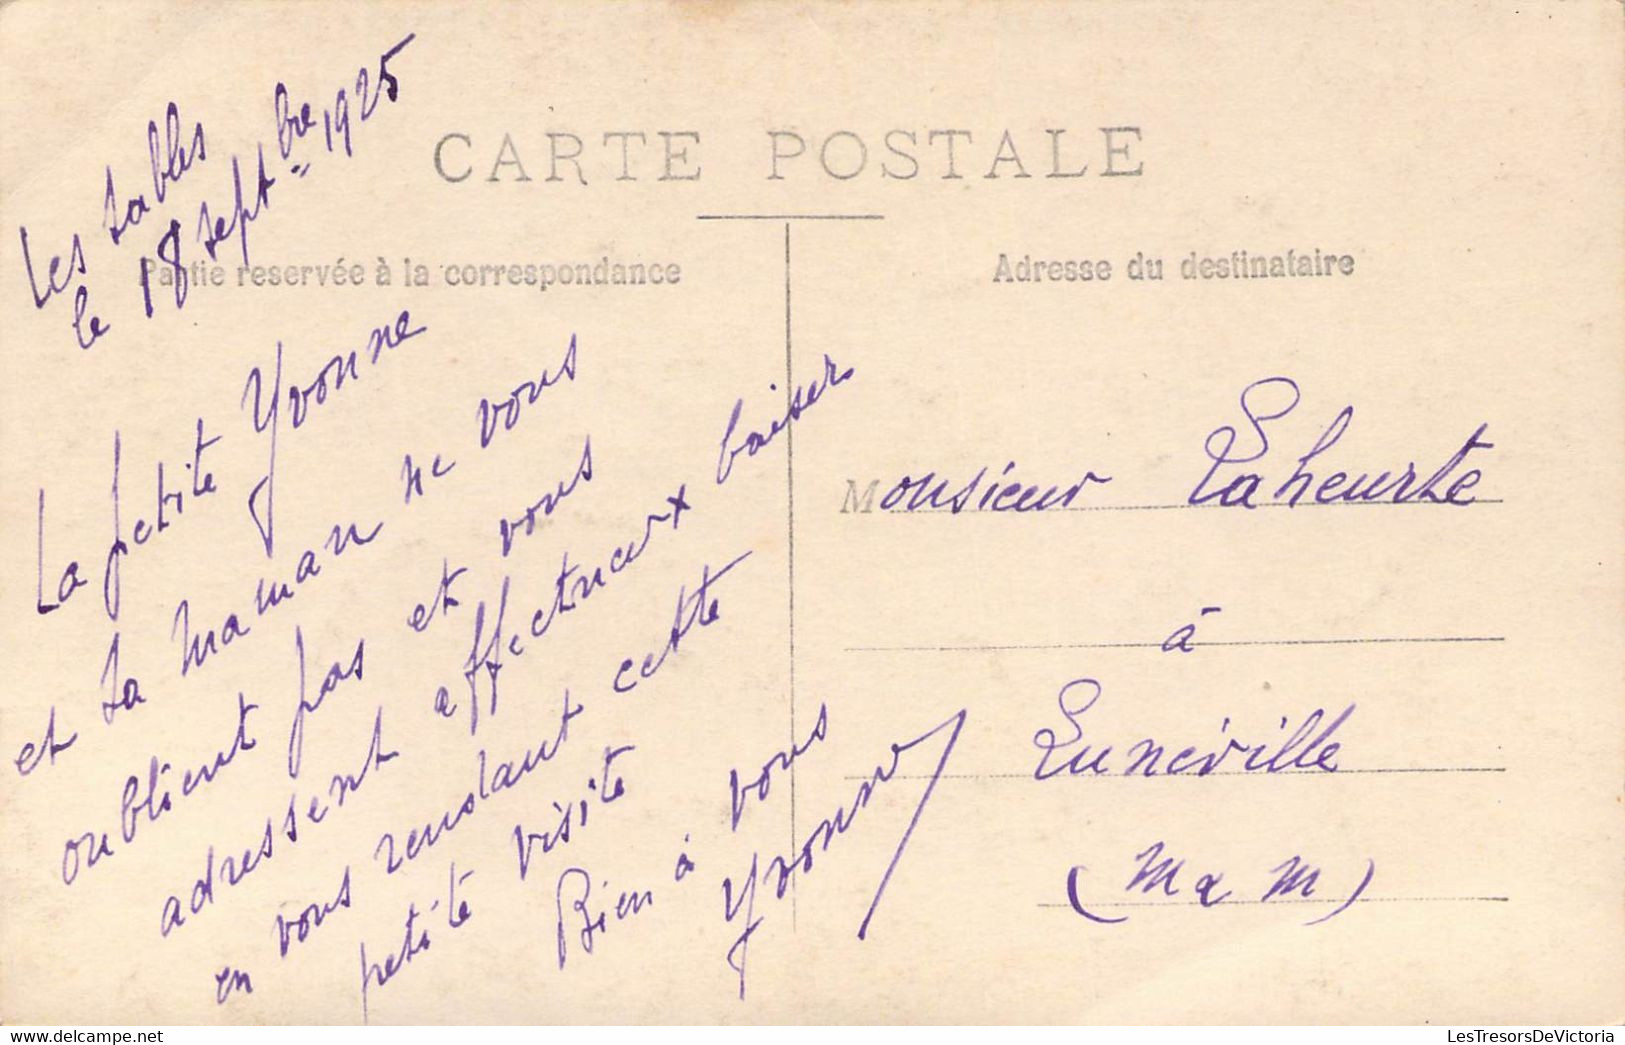 CARTE POSTALE
Partie reservée à la correspondance
Adresse du destinataire
Les Sables
le 18 sept.bre 1925
La petite Yvonne
et sa maman ne vous
oublient pas et vous
adressent affectueux baisers
en vous rendant cette
petite visite
Bien à vous
Yvonne
Monsieur Laheurte
à
Lunéville
(M & M)
LesTresorsDeVictoria